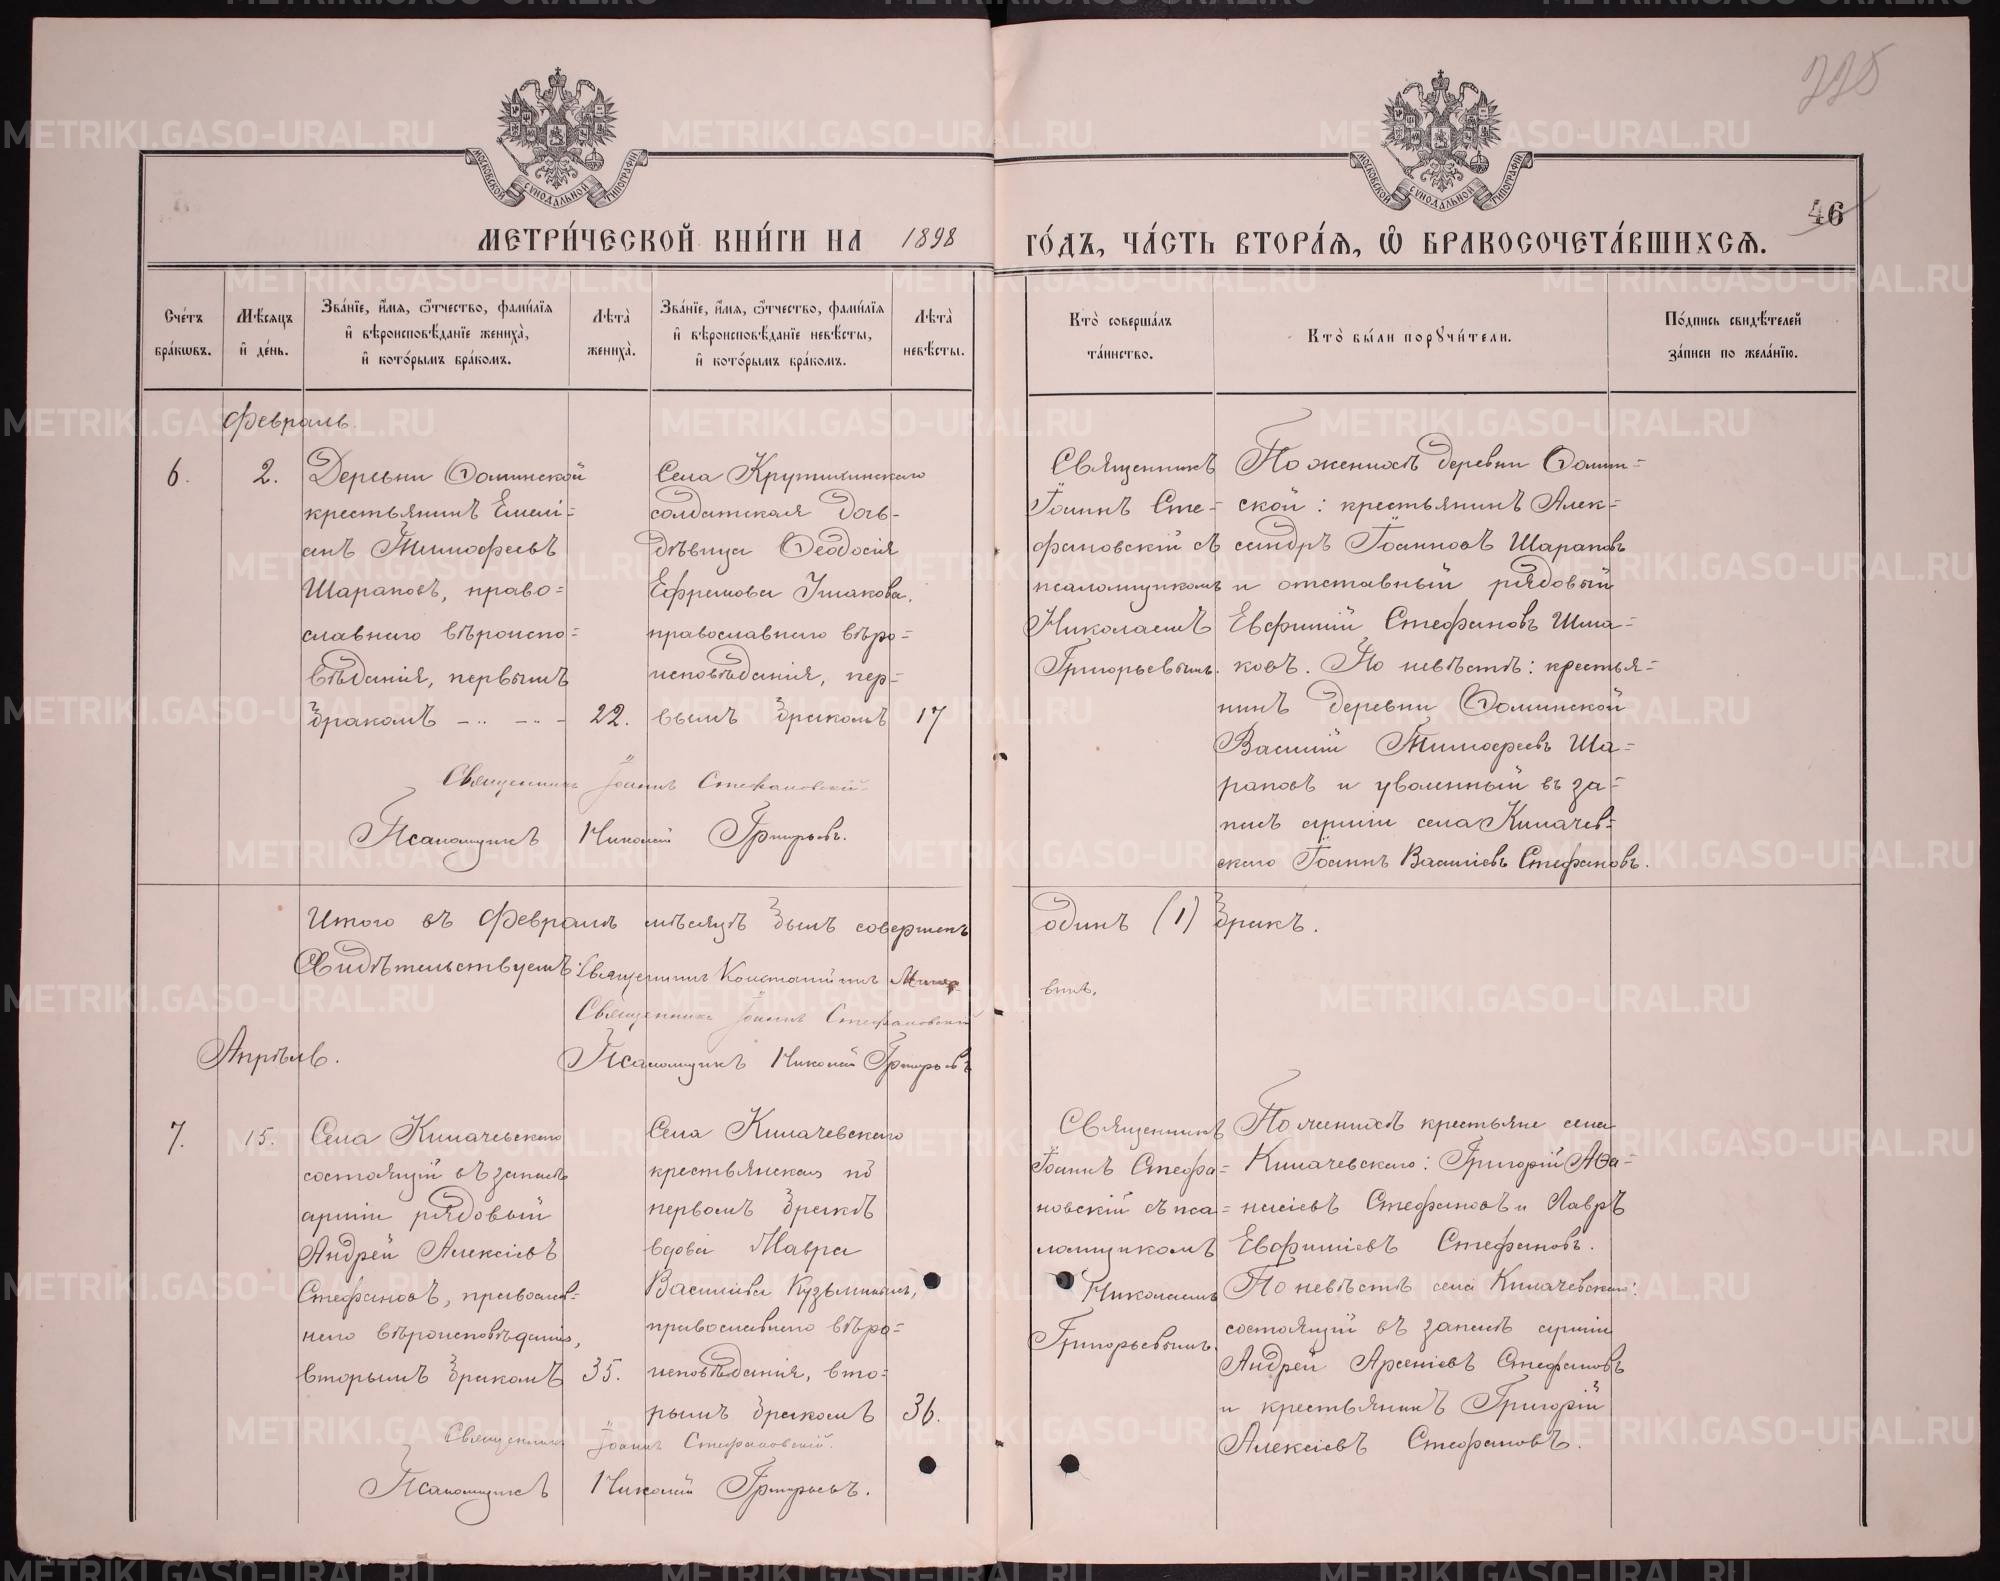 225
46
МОСКОВСКОЙ СѴНОДАЛЬНОЙ ТИПОГРАФІИ
МОСКОВСКОЙ СѴНОДАЛЬНОЙ ТИПОГРАФІИ
МЕТРИ́ЧЕСКОЙ КНИ́ГИ НА 1898
ГО́ДЪ, ЧА́СТЬ ВТОРА́Я, Ѡ БРАКОСОЧЕТА́ВШИХСЯ.
Сче́тъ бра́кωвъ.
Мѣ́сяцъ и де́нь.
Зва́нїе, и́мя, ѻ́тчество, фами́лїя
и вѣроисповѣ́данїе жениха̀,
и кото́рымъ бра́комъ.
Лѣта̀ жениха̀.
Зва́нїе, и́мя, ѻ́тчество, фами́лїя
и вѣроисповѣ́данїе невѣ́сты,
и кото́рымъ бра́комъ.
Лѣта̀ невѣ́сты.
Кто̀ соверша́лъ та́инство.
Кто̀ бы́ли порꙋчи́тели.
По́дпись свидѣ́телей за́писи по жела́нїю.
Февраль.
6.
2.
Деревни Ѳоминской
крестьянинъ Емелі=
анъ Тимофеевъ
Шараповъ, право=
славнаго вѣроиспо=
вѣданія, первымъ
бракомъ
22.
Села Крутихинскаго
солдатская дочь-
дѣвица Ѳеодосія
Ефремова Ушакова,
православнаго вѣро=
исповѣданія, пер=
вымъ бракомъ
17
Священникъ
Іоаннъ Сте=
фановскій съ
псаломщикомъ
Николаемъ
Григорьевымъ.
По женихѣ деревни Ѳомин=
ской: крестьянинъ Алек=
сандръ Іоанновъ Шараповъ
и отставный рядовый
Евфимій Стефановъ
ковъ. По невѣстѣ: крестья=
нинъ деревни Ѳоминской
Василій Тимофеевъ Ша=
раповъ и уволенный въ за=
пасъ арміи села Килачев=
скаго Іоаннъ Василіевъ Стефановъ.
Священникъ Іоаннъ Стефановскій
Псаломщикъ Николай Григорьевъ.
Итого въ Февралѣ мѣсяцѣ былъ совершенъ
одинъ (1) бракъ.
Свидѣтельствуемъ: Священникъ Константинъ
Священникъ Іоаннъ Стефановскій
Псаломщикъ Николай Григорьевъ
Апрѣль.
7.
15.
Села Килачевскаго
состоящій въ запасѣ
арміи рядовый
Андрей Алексіевъ
Стефановъ, православ=
наго вѣроисповѣданія,
вторымъ бракомъ
35.
Села Килачевскаго
крестьянская по
первомъ бракѣ
вдова Мавра
Василіева Кузьминыхъ,
православнаго вѣро=
исповѣданія, вто=
рымъ бракомъ
36.
Священникъ
Іоаннъ Стефа=
новскій съ пса=
ломщикомъ
Николаемъ
Григорьевымъ.
По женихѣ крестьяне села
Килачевскаго: Григорій Аѳа=
насіевъ Стефановъ и Лавръ
Евфиміевъ Стефановъ.
По невѣстѣ села Килачевскаго:
состоящій въ запасѣ арміи
Андрей Арсеніевъ Стефановъ
и крестьянинъ Григорій
Алексіевъ Стефановъ.
Священникъ Іоаннъ Стефановскій.
Псаломщикъ Николай Григорьевъ.
METRIKI.GASO-URAL.RU